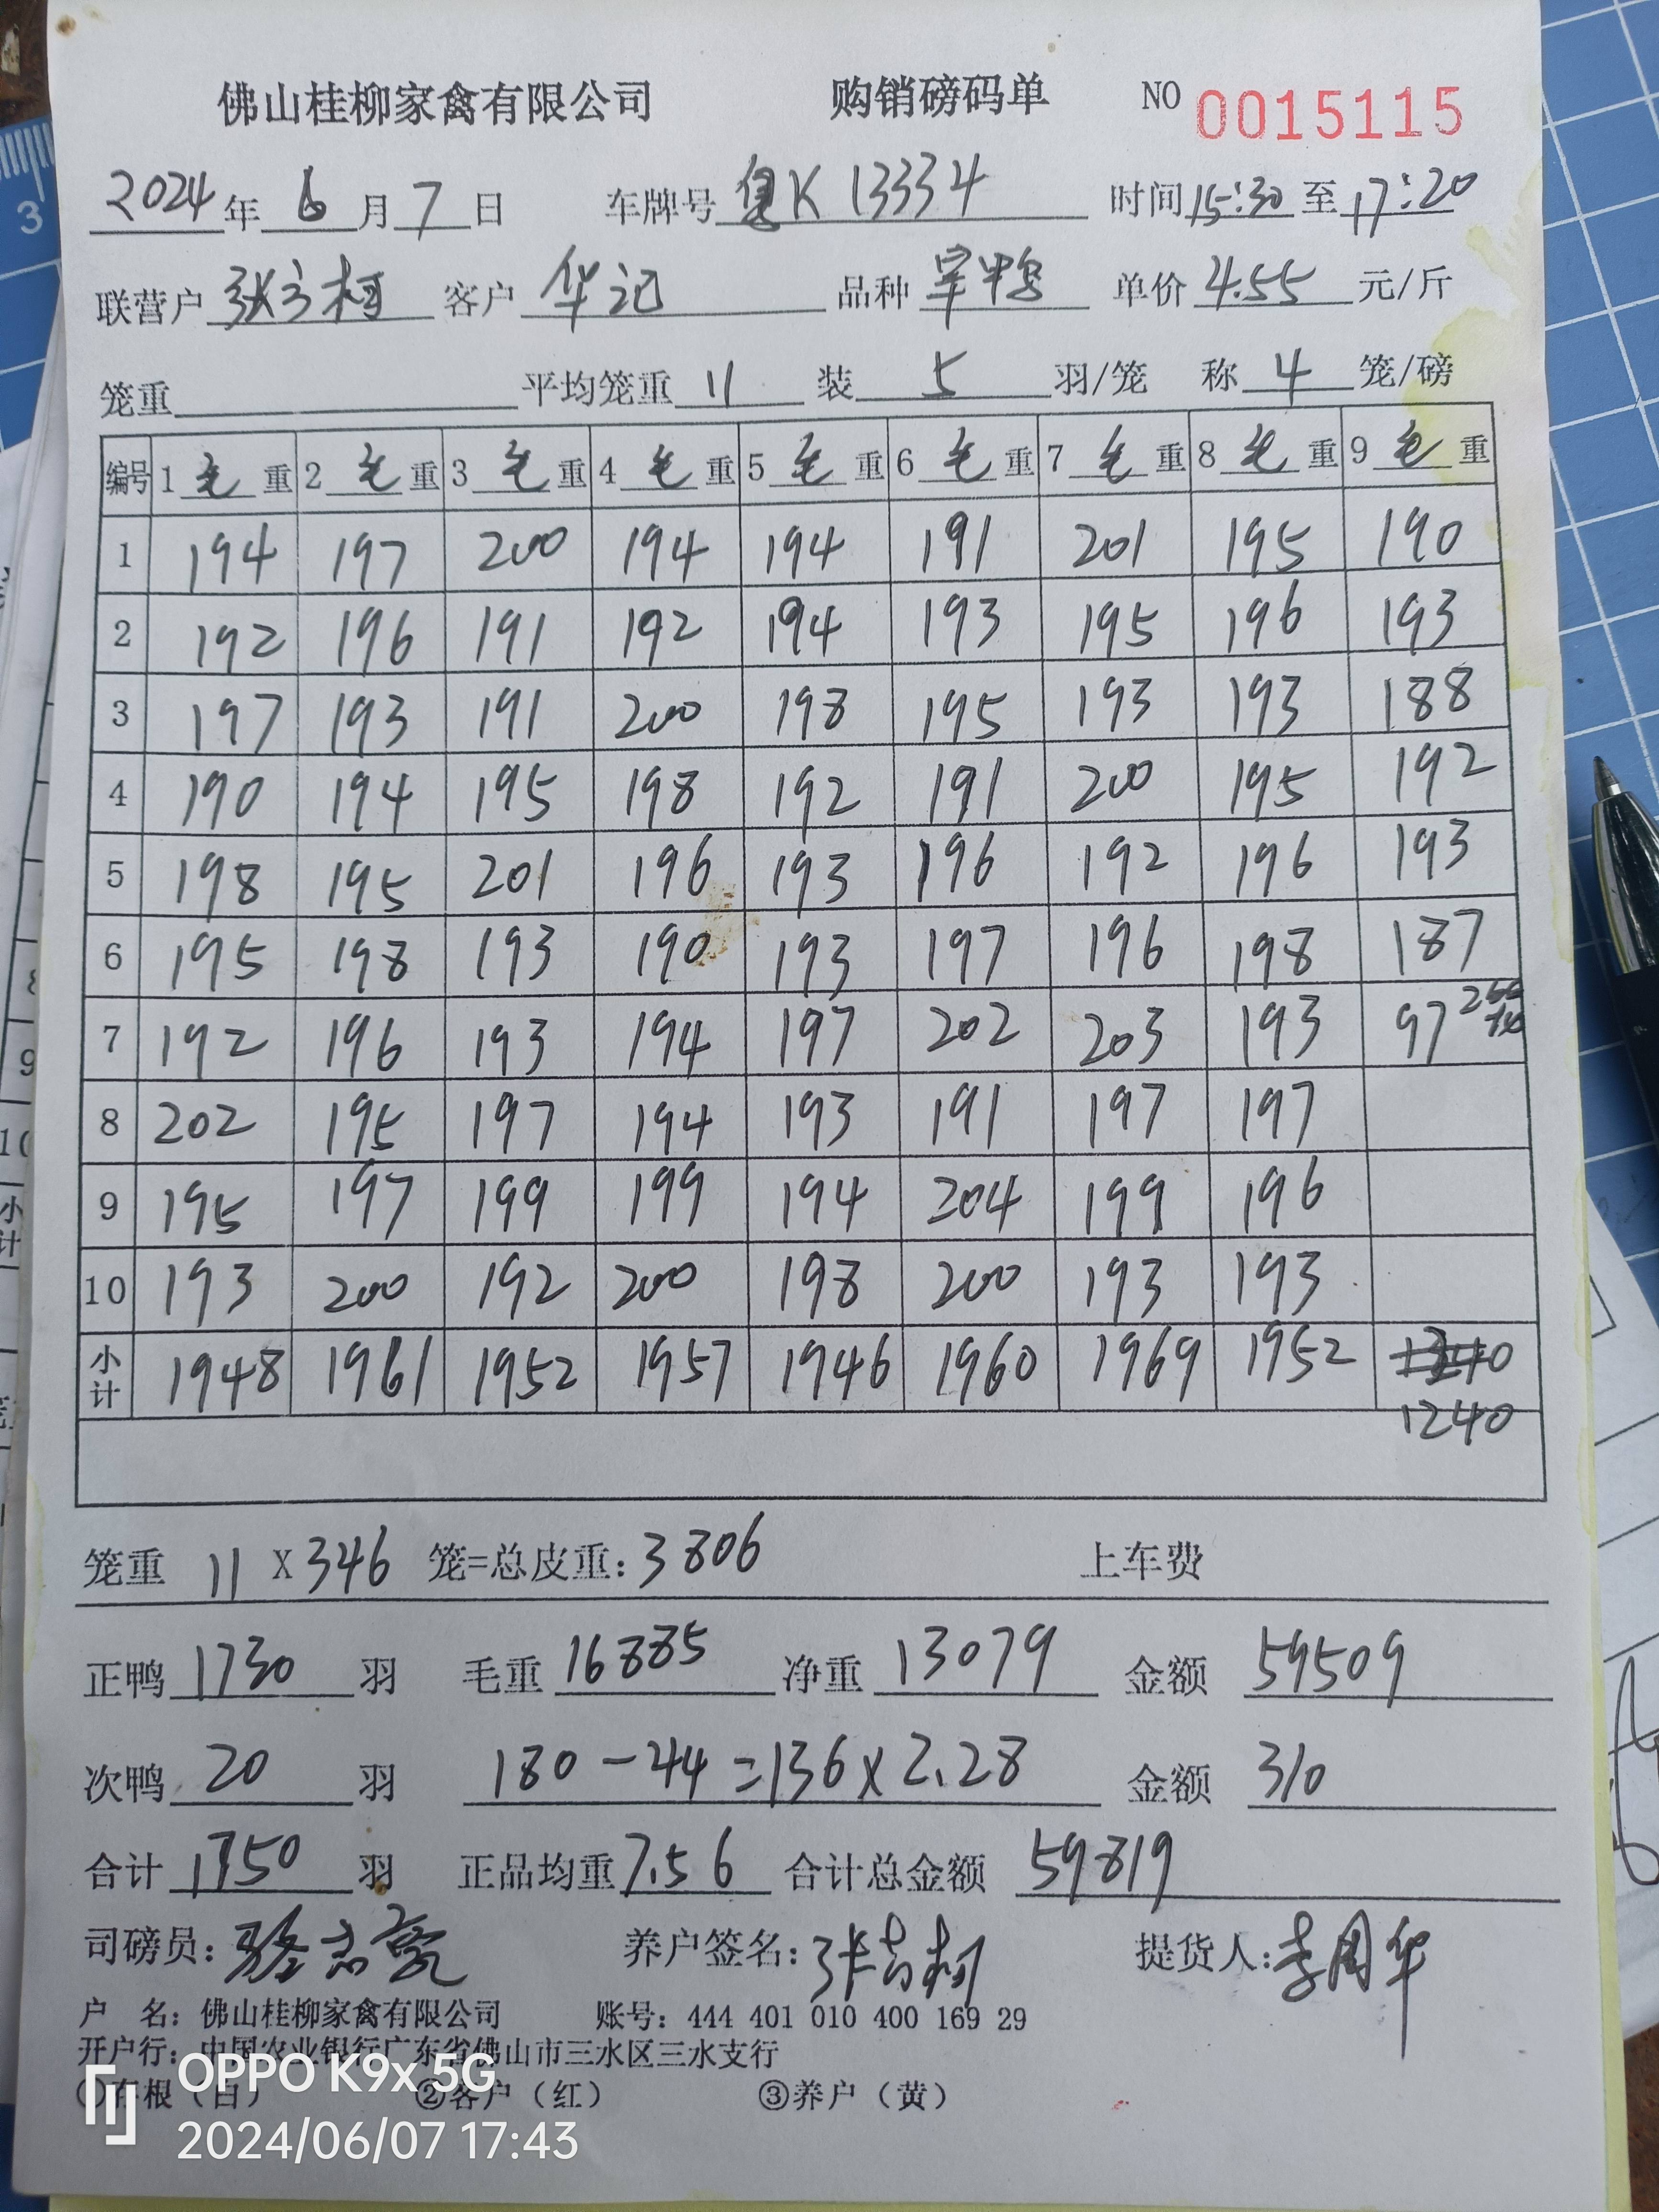 佛山桂柳家禽有限公司 购销磅码单 NO 0015115
2024年 6月 7日 车牌号 粤K 13334 时间 15:30 至 17:20
联营户 客户 华记 品种 单价 4.55 元/斤
笼重 平均笼重 11 装 5 羽/笼 称 4 笼/磅
编号 1 毛 重 2 毛 重 3 毛 重 4 毛 重 5 毛 重 6 毛 重 7 毛 重 8 毛 重 9 毛 重
1 194 197 200 194 194 191 201 195 190
2 192 196 191 192 194 193 195 196 193
3 197 193 191 200 198 195 193 193 188
4 190 194 195 198 192 191 200 195 192
5 198 195 201 196 193 196 192 196 193
6 195 198 193 190 193 197 196 198 187
7 192 196 193 194 197 202 203 193 97
8 202 195 197 194 193 191 197 197
9 195 197 199 199 194 204 199 196
10 193 200 192 200 198 200 193 193
小计 1948 1961 1952 1957 1946 1960 1969 1952
1240
笼重 11 X 346 笼=总皮重: 3806 上车费
正鸭 1730 羽 毛重 16885 净重 13079 金额 59509
次鸭 20 羽 180-44=136x2.28 金额 310
合计 1750 羽 正品均重 7.56 合计总金额 59819
司磅员: 养户签名: 提货人: 李周华
户 名: 佛山桂柳家禽有限公司 账号: 444 401 010 400 169 29
开户行: 中国农业银行广东省佛山市三水区三水支行
①存根（白） ②客户（红） ③养户（黄）
OPPO K9x 5G
2024/06/07 17:43